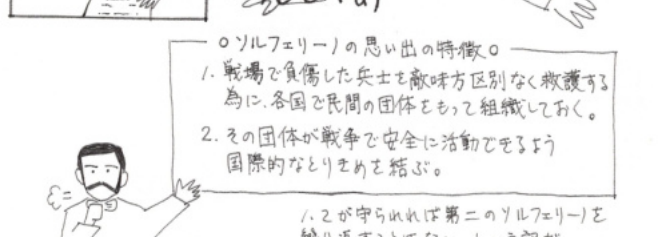 ○ソルフェリーノの思い出の特徴○
1. 戦場で負傷した兵士を敵味方区別なく救護する
為に、各国で民間の団体をもって組織しておく。
2. その団体が戦争で安全に活動できるよう
国際的なとりきめを結ぶ。
1. 2が守られれば第二のソルフェリーノを